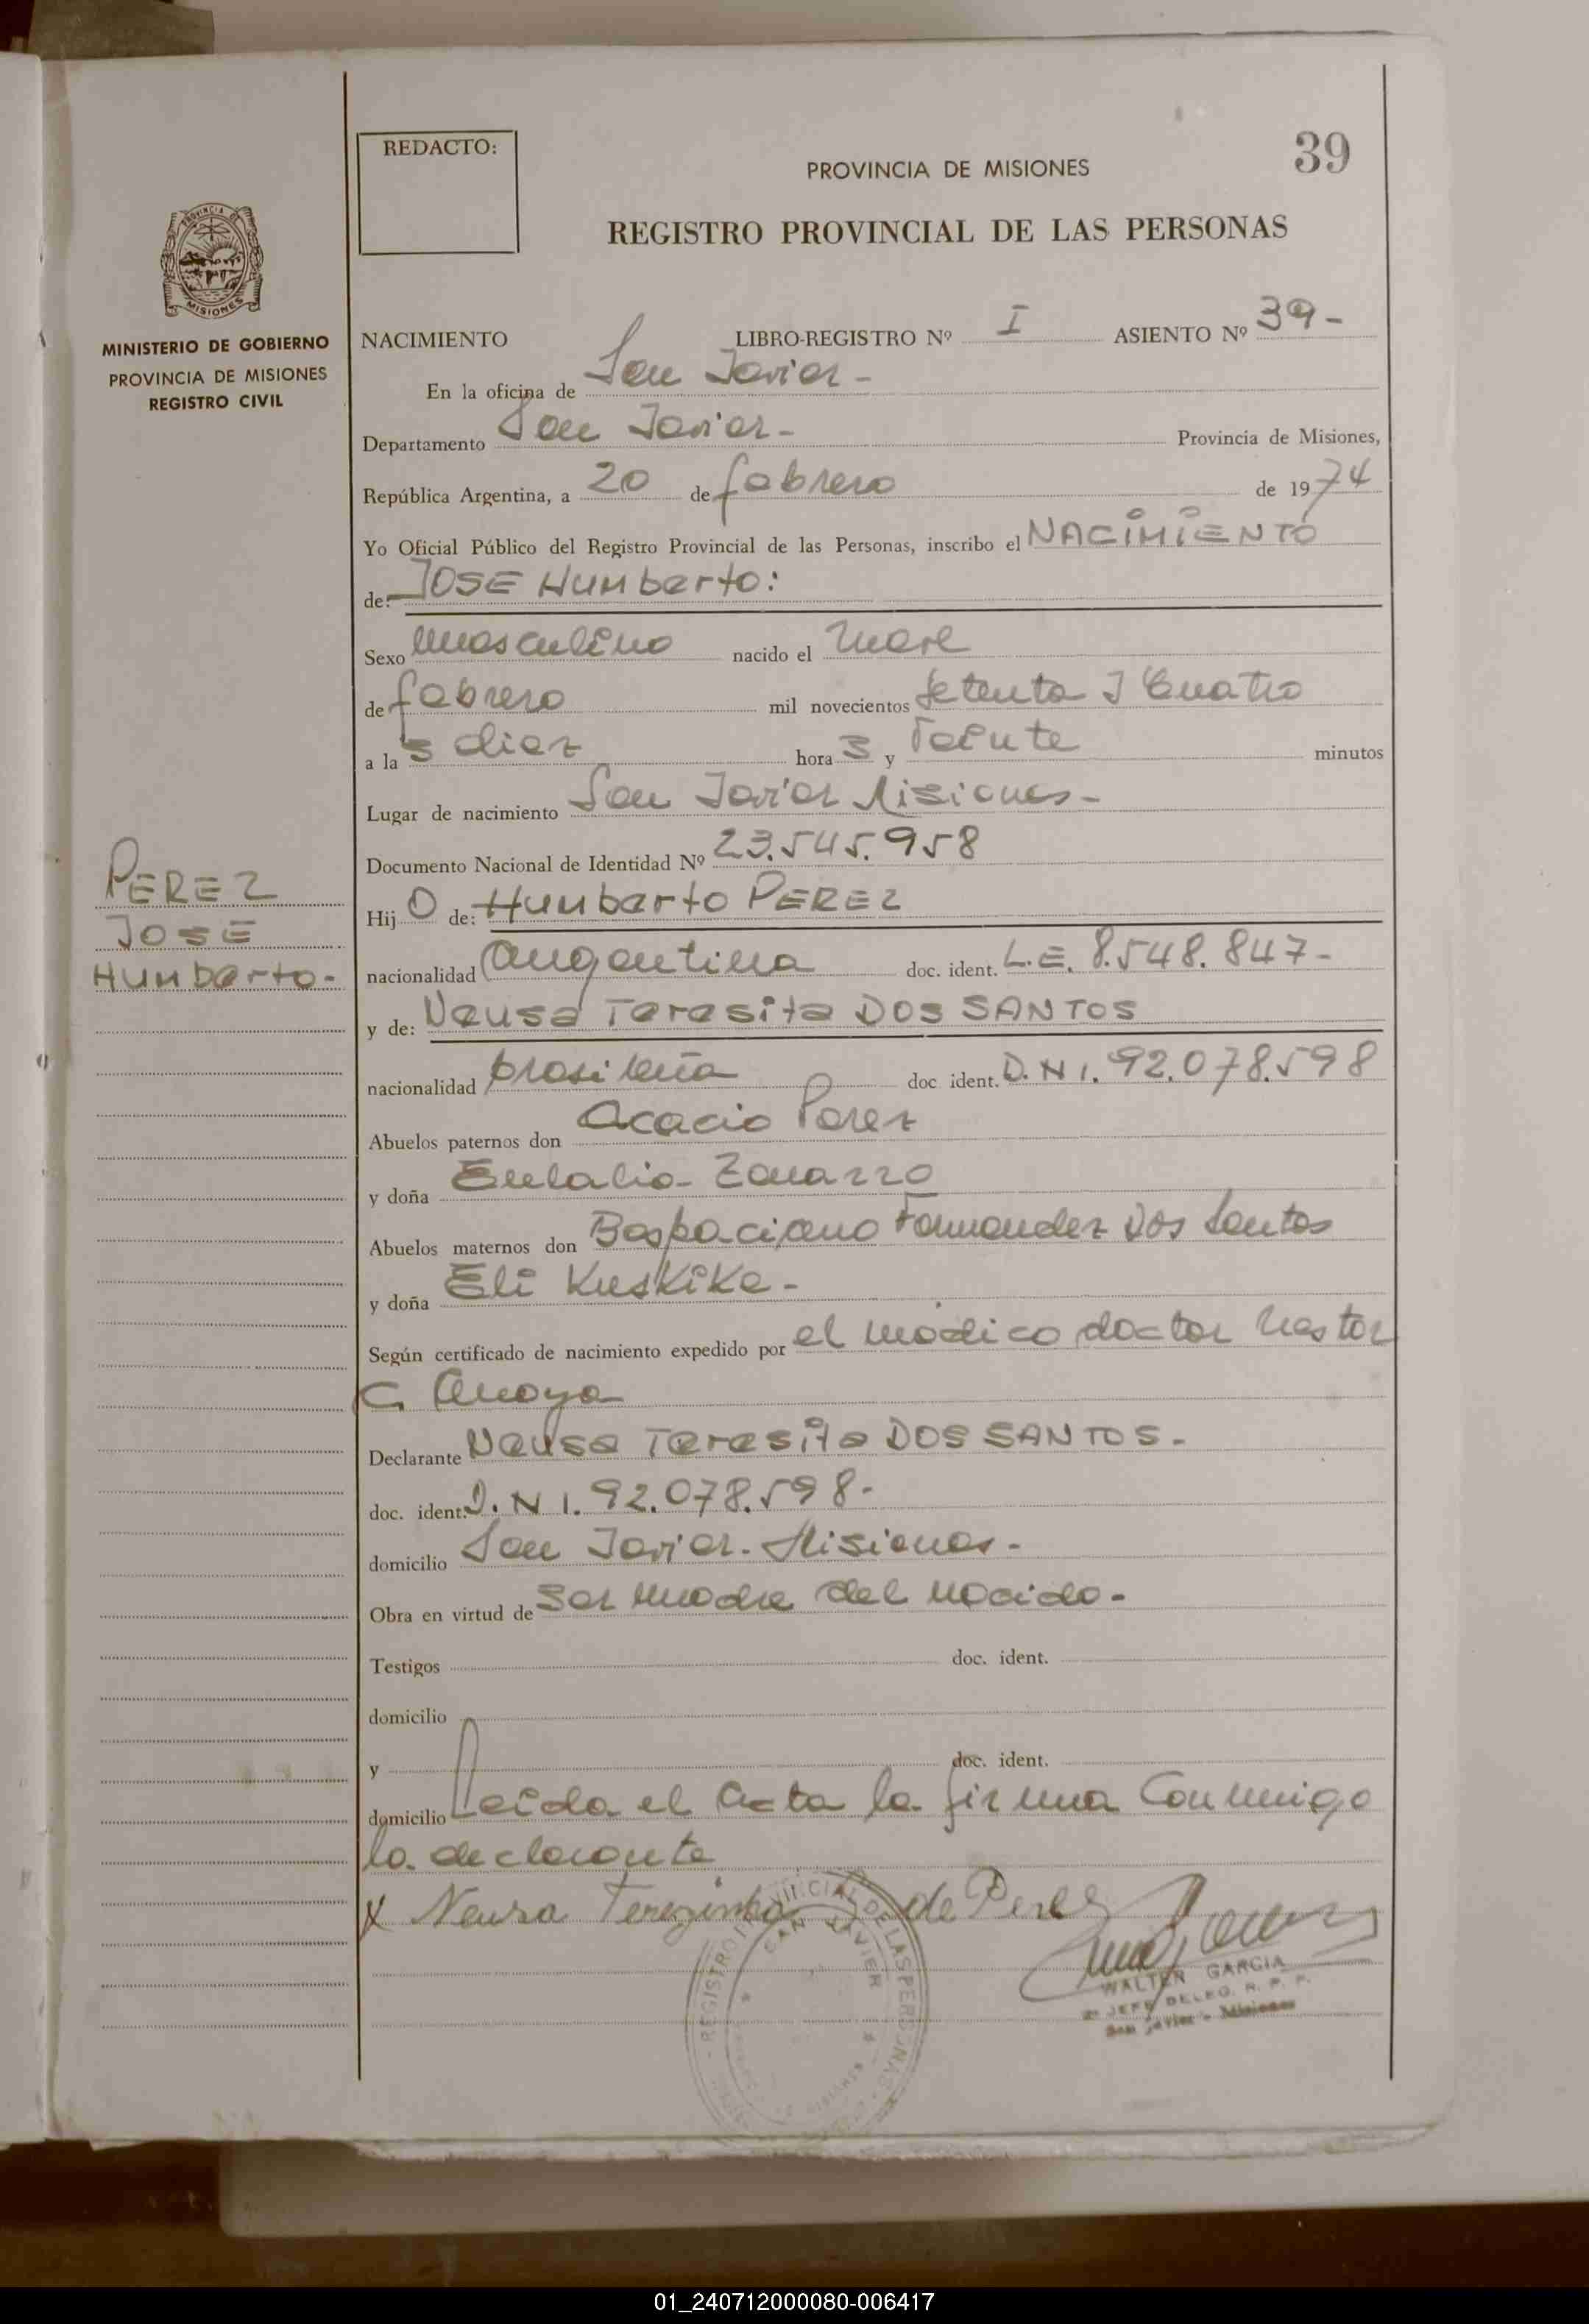 39
REDACTO:
PROVINCIA DE MISIONES
REGISTRO PROVINCIAL DE LAS PERSONAS
PROVINCIA DE
MISIONES
MINISTERIO DE GOBIERNO
PROVINCIA DE MISIONES
REGISTRO CIVIL
NACIMIENTO LIBRO-REGISTRO Nº I ASIENTO Nº 39-
En la oficina de San Javier-
Departamento San Javier- Provincia de Misiones,
República Argentina, a 20 de febrero de 1974
Yo Oficial Público del Registro Provincial de las Personas, inscribo el NACIMIENTO
de: JOSE Humberto:
Sexo masculino nacido el nueve
de febrero mil novecientos setenta y cuatro
a las diez horas y veinte minutos
Lugar de nacimiento San Javier Misiones-
Documento Nacional de Identidad Nº 23.545.958
PEREZ
JOSE
Humberto-
Hijo de: Humberto PEREZ
nacionalidad argentina doc. ident. L.E. 8.548.847-
y de: Neusa Teresita DOS SANTOS
nacionalidad brasileña doc ident. D.N I. 92.078.598
Abuelos paternos don Acacio Perez
y doña Eulalia
Abuelos maternos don Dos Santos
y doña Eli
Según certificado de nacimiento expedido por el médico doctor Nestor
C.
Declarante Neusa Teresita DOS SANTOS.-
doc. ident. D.N I. 92.078.598-
domicilio San Javier- Misiones-
Obra en virtud de ser madre del nacido-
Testigos doc. ident.
domicilio
y doc. ident.
domicilio Leida el acta la firma conmigo
la declarante
x Neusa Terezinha de Perez
REGISTRO PROVINCIAL DE LAS PERSONAS
SAN JAVIER
MISIONES
WALTER GARCIA
JEFE DELEG. R. P. P.
San Javier - Misiones
01_240712000080-006417